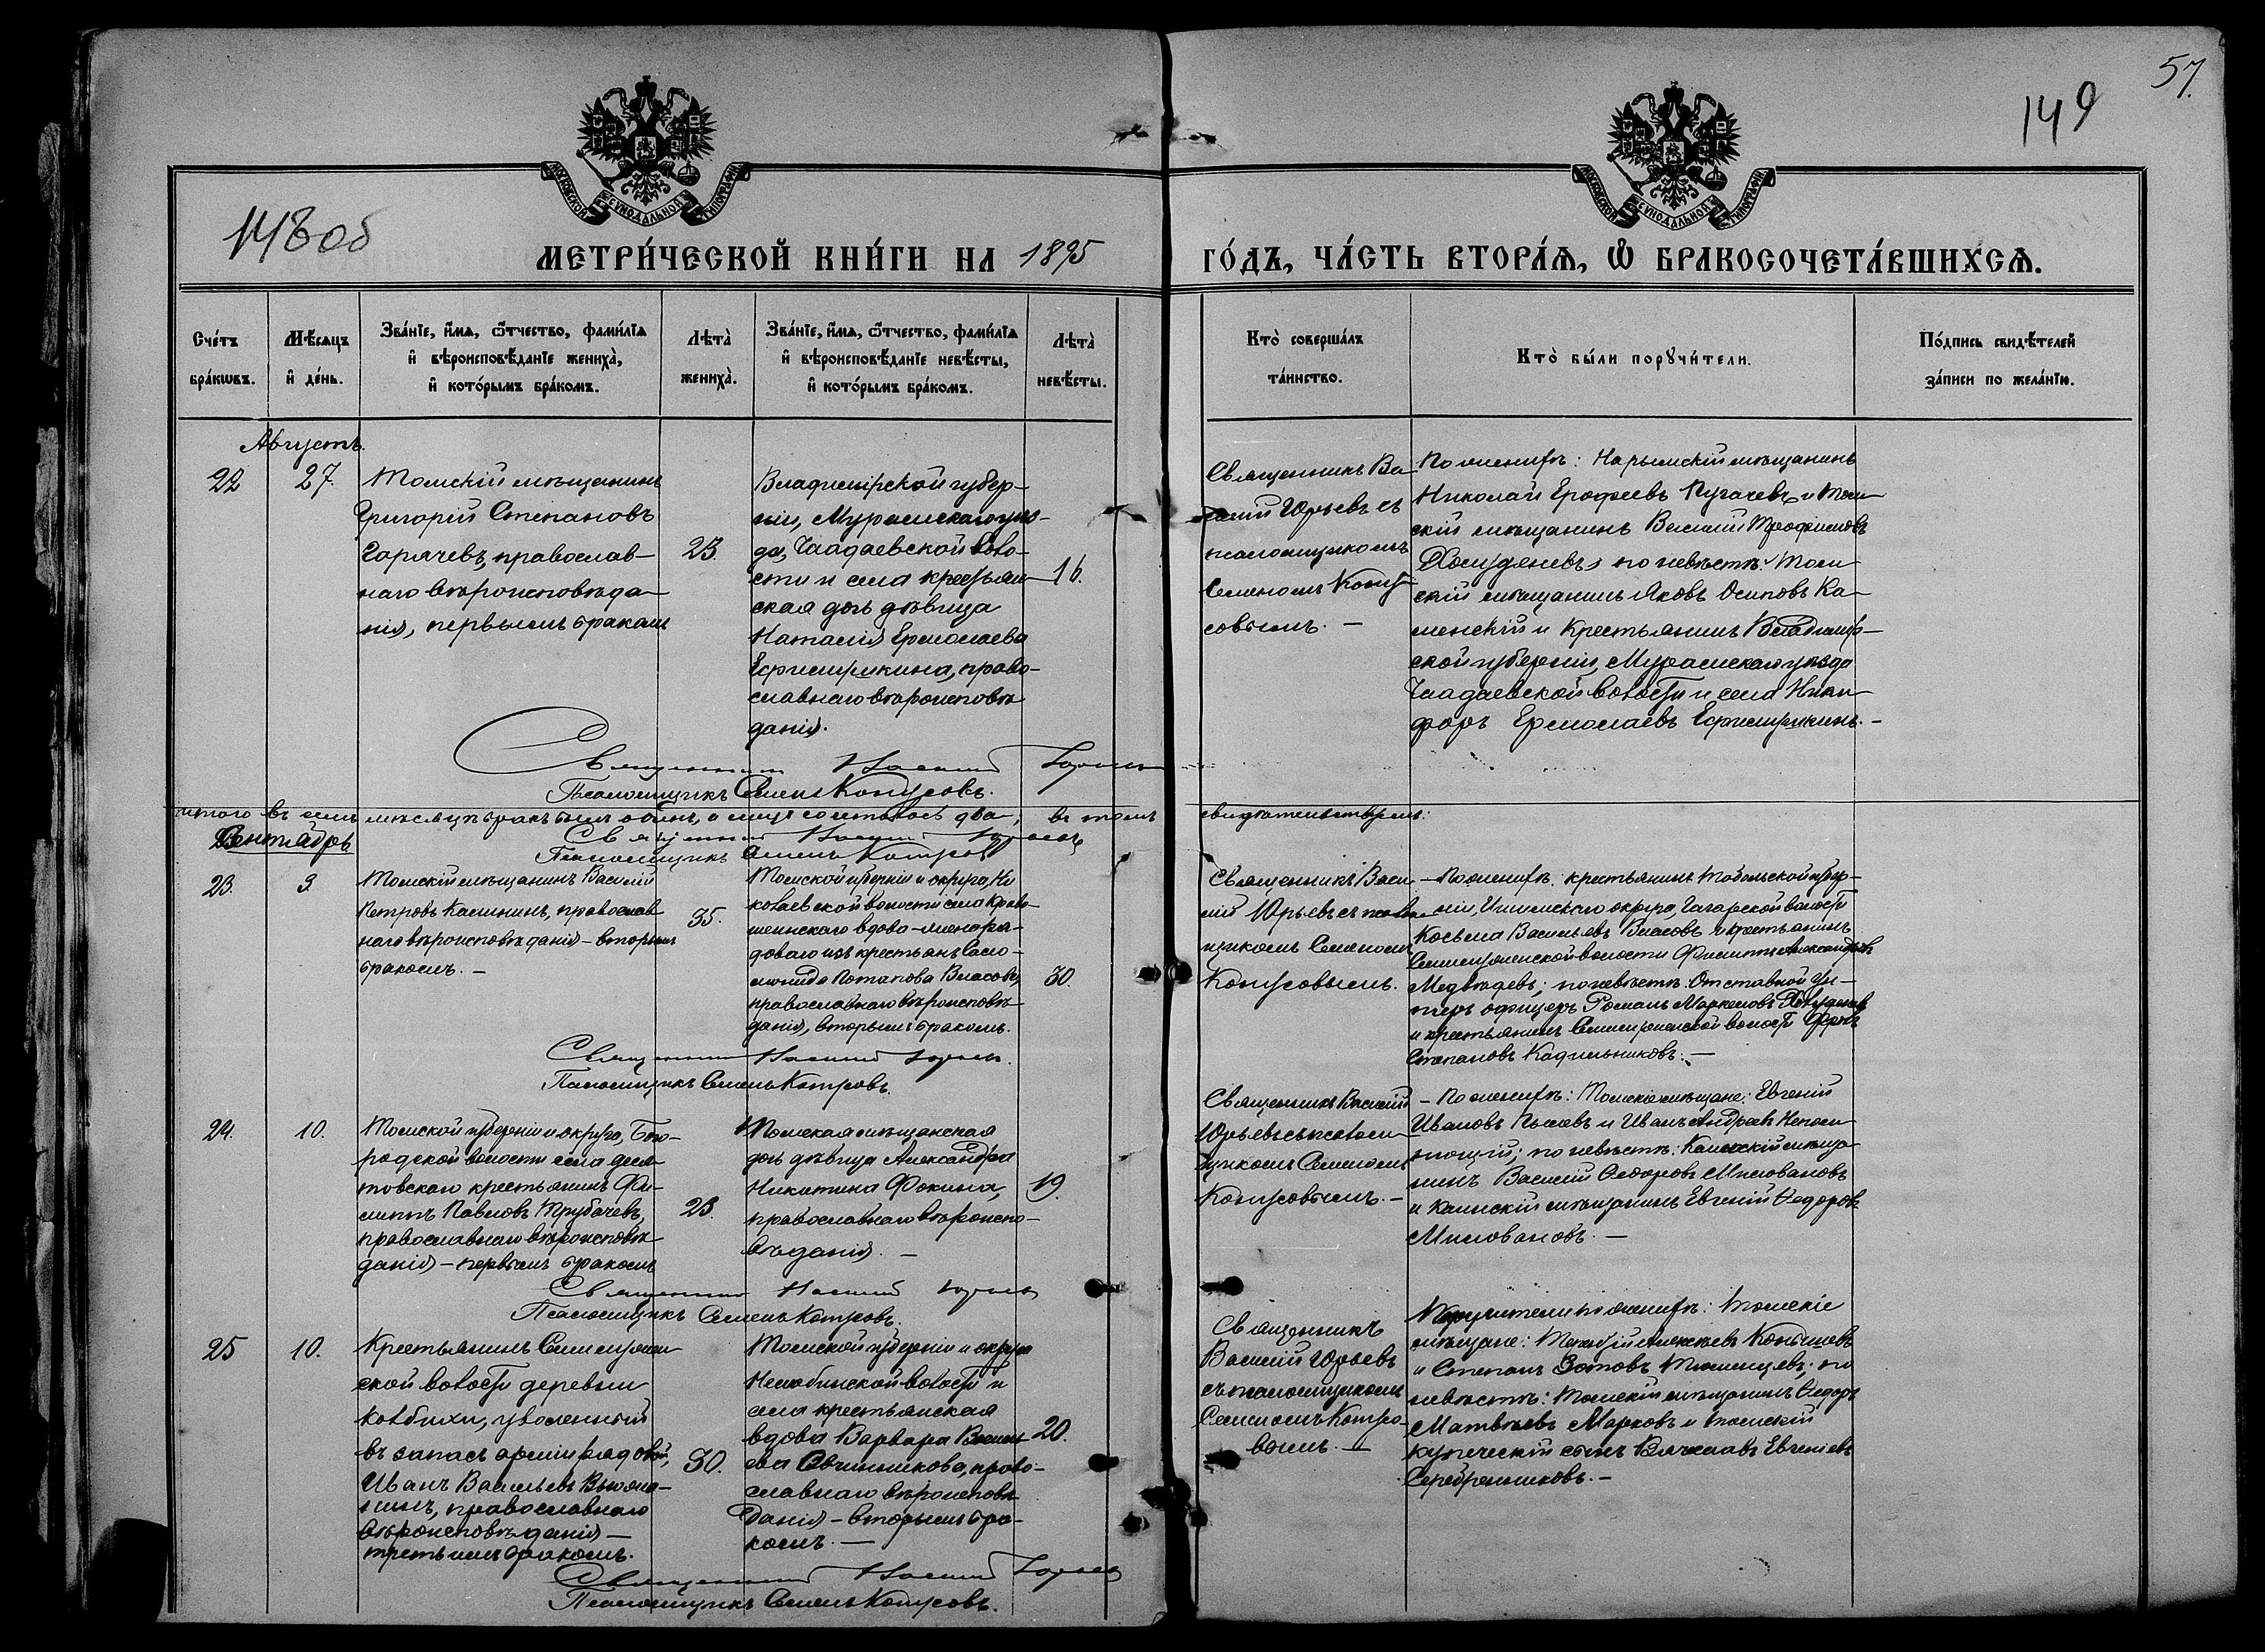 57.
149
148 об
МОСКОВСКОЙ СѴНОДАЛЬНОЙ ТИПОГРАФІИ
МОСКОВСКОЙ СѴНОДАЛЬНОЙ ТИПОГРАФІИ
МЕТРИ́ЧЕСКОЙ КНИ́ГИ НА 1895
ГО́ДЪ, ЧА́СТЬ ВТОРА́Ѧ, Ѡ БРАКОСОЧЕТА́ВШИХСѦ.
Сче́тъ
бра́кѡвъ.
Мѣ́сяцъ
и҆ де́нь.
Зва́нїе, и҆́мѧ, ѻ҆́тчество, фами́лїѧ
и҆ вѣроисповѣ́данїе жениха̀,
и҆ кото́рымъ бра́комъ.
Лѣ́та̀
жениха̀.
Зва́нїе, и҆́мѧ, ѻ҆́тчество, фами́лїѧ
и҆ вѣроисповѣ́данїе невѣ́сты,
и҆ кото́рымъ бра́комъ.
Лѣ́та̀
невѣ́сты.
Кто̀ соверша́лъ
та́инство.
Кто̀ бы́ли порꙋчи́тели.
По́дпись свидѣ́телей
за́писи по жела́нїю.
Августъ.
22
27.
Томскій мѣщанинъ
Григорій Степановъ
Горячевъ, православ-
наго вѣроисповѣда-
нія, первымъ бракомъ
23.
Владимірской губер-
ніи, Муромскаго уѣз-
да, Чаадаевской воло-
сти и села крестьян-
ская дочь дѣвица
Наталія Ермолаева
право-
славнаго вѣроисповѣ-
данія.
16.
Священникъ Ва-
силій Юрьевъ съ
псаломщикомъ
Семеномъ Конду-
совымъ. —
По женихѣ: Нарымскій мѣщанинъ
Николай Ерофеевъ Пугачевъ и Том-
скій мѣщанинъ Василій Трофимовъ
по невѣстѣ: Том-
скій мѣщанинъ Яковъ Осиповъ Ка-
менскій и крестьянинъ Владимір-
ской губерніи, Муромскаго уѣзда
Чаадаевской волости и села Ники-
форъ Ермолаевъ
Священникъ Василій Юрьевъ
Псаломщикъ Семенъ
Итого въ семъ мѣсяцѣ бракъ былъ одинъ, а лицъ сочеталось два, въ томъ
свидѣтельствуемъ:
Сентябрь
Священникъ Василій Юрьевъ
Псаломщикъ Семенъ
23.
3
Томскій мѣщанинъ Василій
Петровъ Калининъ, православ-
наго вѣроисповѣданія — вторымъ
бракомъ. —
35.
Томской губерніи и округа, Ни-
колаевской волости села Криво-
шеинскаго вдова
изъ крестьянъ Само-
Потапова Власова,
православнаго вѣроисповѣ-
данія, вторымъ бракомъ.
30.
Священникъ Васи-
лій Юрьевъ съ псалом-
щикомъ Семеномъ
— По женихѣ: крестьянинъ Тобольской губер-
ніи, Ишимскаго округа, волости
Косьма Васильевъ Власовъ и крестьянинъ
Семилужинской волости Филиппъ Александровъ
Медвѣдевъ; по невѣстѣ: Отставной Ун-
теръ офицеръ Романъ Маркеловъ
и крестьянинъ Семилужинской волости Фролъ
Степановъ Кадильниковъ. —
Священникъ Василій Юрьевъ.
Псаломщикъ Семенъ
24.
10.
Томской губерніи и округа, Бого-
родской волости села
крестьянинъ Фи-
липпъ Павловъ Трубачевъ,
православнаго вѣроисповѣ-
данія — первымъ бракомъ
23.
Томская мѣщанская
дочь дѣвица Александра
Никитина Фокина,
православнаго вѣроиспо-
вѣданія. —
19.
Священникъ Василій
Юрьевъ съ псалом-
щикомъ Семеномъ
— По женихѣ: Томскіе мѣщане: Евгеній
Ивановъ и Иванъ Андреевъ Непом-
нющій; по невѣстѣ: Каинскій мѣща-
нинъ Василій Федоровъ Миловановъ
и Каинскій мѣщанинъ Евгеній Федоровъ
Миловановъ. —
Священникъ Василій Юрьевъ
Псаломщикъ Семенъ
25
10.
Крестьянинъ Семилужин-
ской волости деревни
уволенный
въ запасъ арміи рядовой,
Иванъ Васильевъ
православнаго
вѣроисповѣданія —
третьимъ бракомъ.
30.
Томской губерніи и округа
Нелюбинской волости и
села крестьянская
вдова Варвара Василь-
ева Овчинникова, право-
славнаго вѣроисповѣ-
данія — вторымъ бра-
комъ. —
20.
Священникъ
Василій Юрьевъ
съ псаломщикомъ
Семеномъ
Поручители по женихѣ: Томскіе
мѣщане: Алексѣевъ
и Степанъ Зотовъ Тюменцевъ; по
невѣстѣ: Томскій мѣщанинъ Федоръ
Матвѣевъ Марковъ и томскій
купеческій сынъ Вячеславъ Евгеніевъ
Серебренниковъ. —
Священникъ Василій Юрьевъ
Псаломщикъ Семенъ